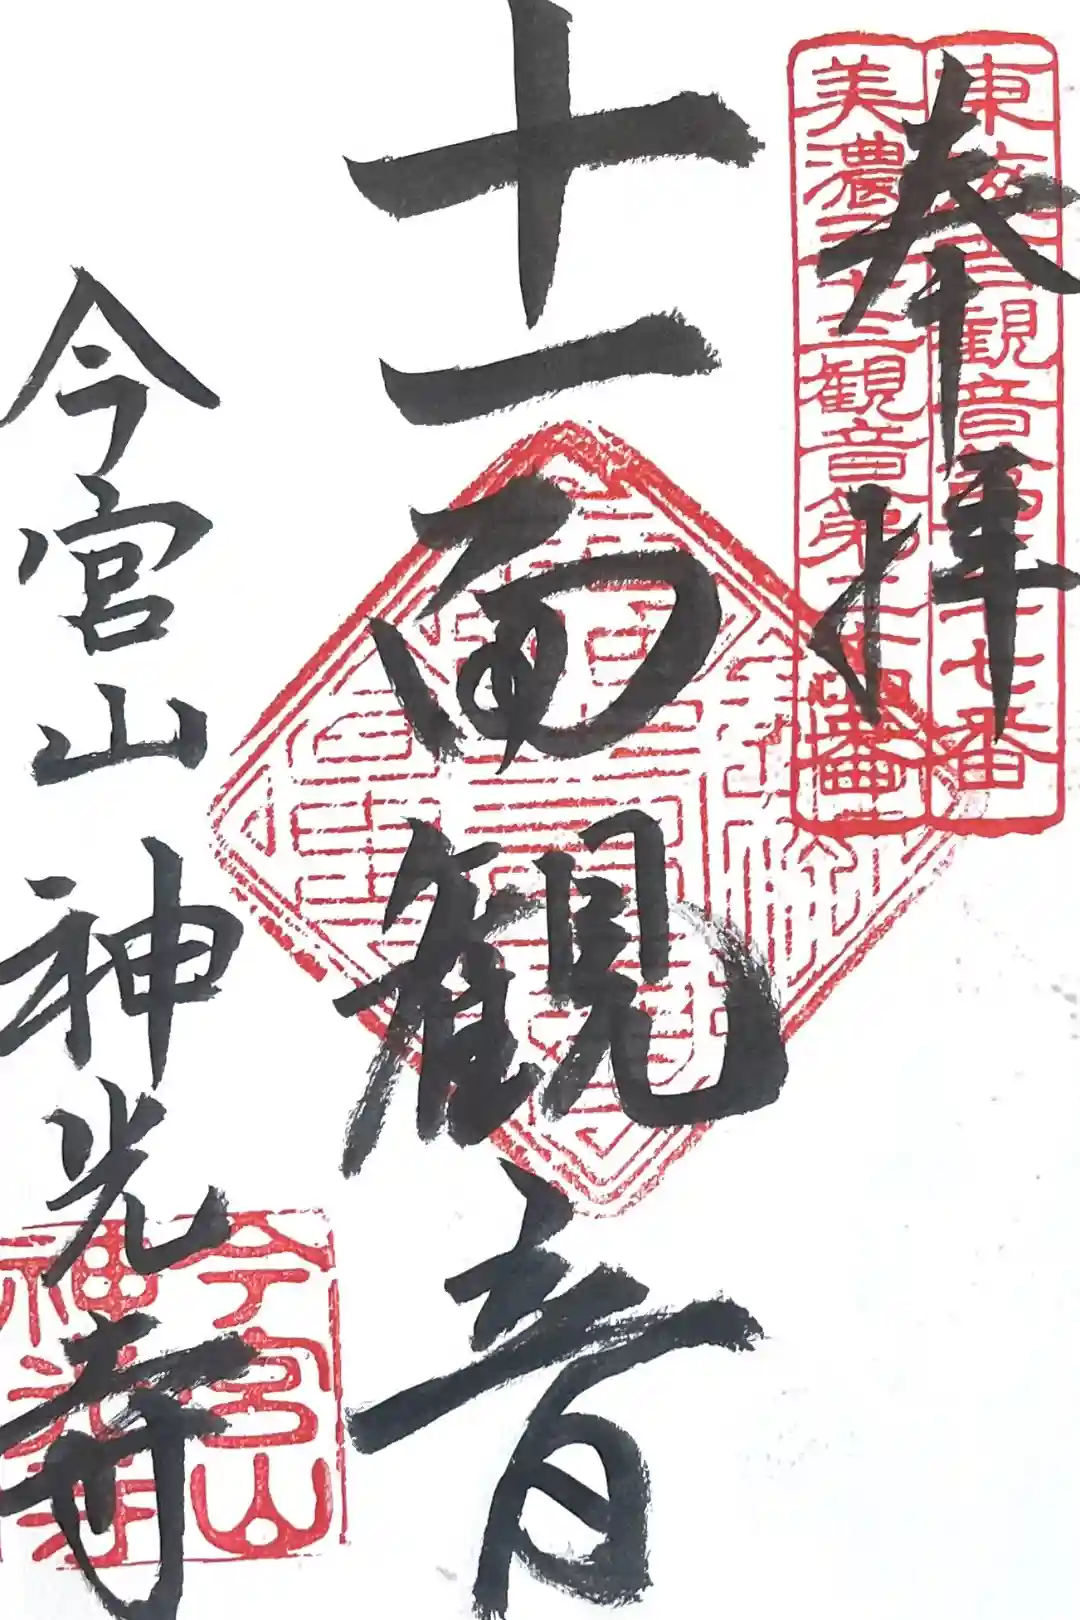 東海百観音第 七番
美濃三十三観音第 番
奉拝
十一面観音
今宮山神光寺
今宮山
神光寺